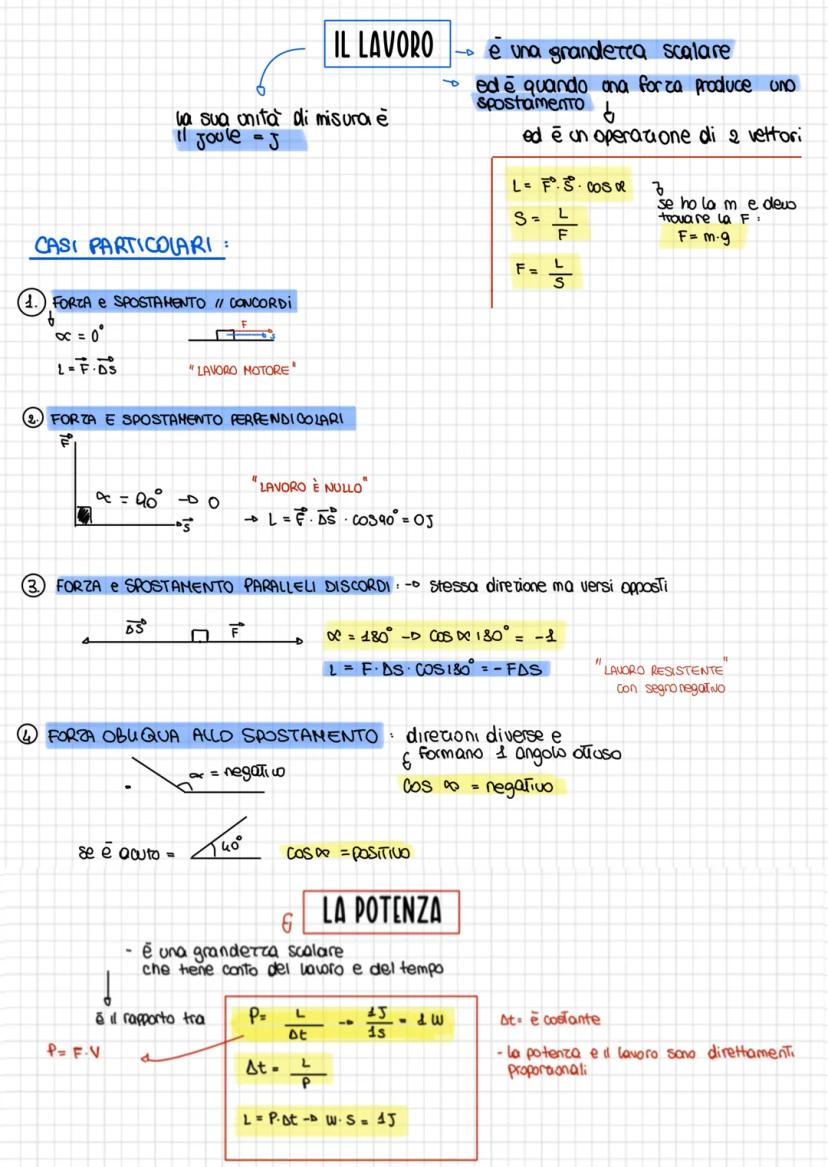 IL LAVORO
è una grandezza scalare
ed è quando una forza produce uno
spostamento
ed è un operazione di 2 vettori
la sua unità di misura è
il joule = J
L = F · S · cos α
S = L / F
F = L / S
se ho la m e devo
trovare la F :
F = m·g
CASI PARTICOLARI :
1. FORZA e SPOSTAMENTO // CONCORDI
α = 0°
L = F · ΔS
F
S
"LAVORO MOTORE"
2. FORZA E SPOSTAMENTO PERPENDICOLARI
F
α = 90° → 0
S
"LAVORO È NULLO"
→ L = F · ΔS · COS90° = 0J
3. FORZA e SPOSTAMENTO PARALLELI DISCORDI : → stessa direzione ma versi opposti
ΔS F
α = 180° → COS α 180° = -1
L = F · ΔS · COS180° = - FΔS
"LAVORO RESISTENTE"
con segno negativo
4 FORZA OBLIQUA ALLO SPOSTAMENTO : direzioni diverse e
formano 1 angolo ottuso
α = negativo
COS α = negativo
se è acuto =
40°
COS α = POSITIVO
LA POTENZA
- è una grandezza scalare
che tiene conto del lavoro e del tempo
è il rapporto tra
P = L / Δt → 1J / 1s = 1 W
Δt = L / P
L = P·Δt → W·S = 1J
P = F·V
Δt = è costante
- la potenza e il lavoro sono direttamenti
proporzionali